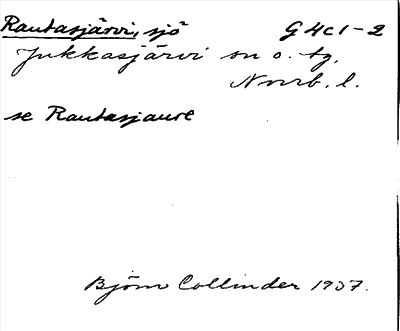 Rautasjärvi, sjö G 4c1-2
Jukkasjärvi sn o. tg,
Norrb. l.
se Rautasjaure
Björn Collinder 1937.